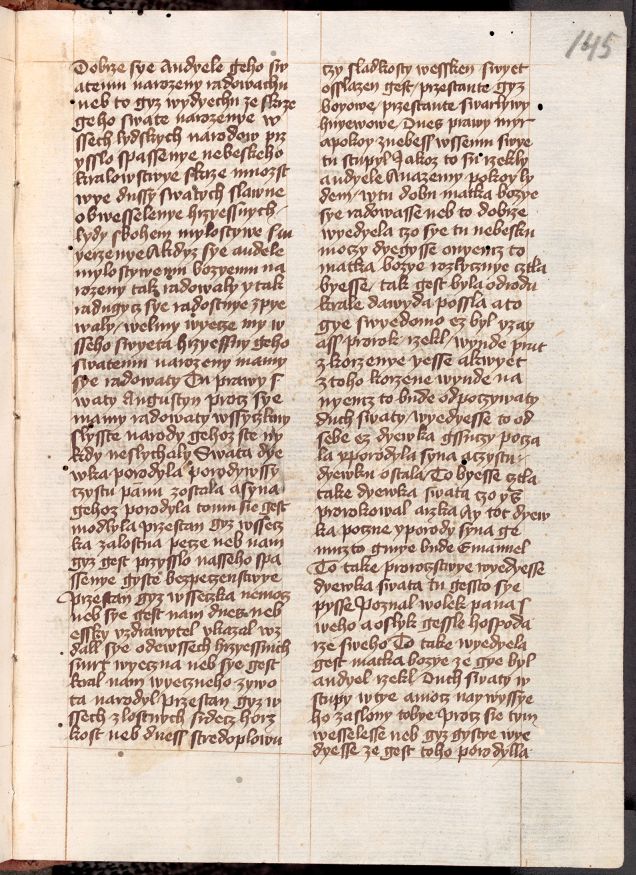 145
Dobrze sye Andyele geho sw
atemu narozeny radowachu
neb to gyz wydyechu ze skrze
geho swate narozenye w
ssech lydskych narodow prz
ysslo spassenye nebeskeho
kralowstwye skrze mnozst
wye dussy swatych slawne
obwesselenye hrzyessnych
lydy sbohem mylostywe sm
yerzenye Akdyz sye andele
mylostywemu bozyemu na
rozeny tak radowaly y tak
radugycz sye radostnye zpye
waly welmy wyecze my w
sseho swyeta hrzyessny geho
swatemu narozeny mamy
sye radowaty Tu prawy s
waty Augustyn procz sye
mamy radowaty wssyczkny
slysste narody gehoz ste ny
kdy neslychaly Swata dye
wka porodyla porodywssy
czystu pannu zostala a syna
gehoz porodyla tomu sie gest
modlyla przestan gyz wssecz
ka zalostna pecze neb nam
gyz gest przysslo nasseho spa
ssenye gyste bezpeczenstwye
przestan gyz wsseczka nemocz
neb sye gest nam dnes neb
essky vzdrawytel vkazal wz
dall sye odewssech hrzyessnich
smrt wyeczna neb sye gest
kral nam wyeczneho zywo
ta narodyl przestan gyz w
ssech zlostnych srdecz horz
kost neb dness stredoplowu
czy sladkosty wessken swyet
osslazen gest przestante gyz
boyowe przestante swarzywy
hnyewowe Dnes prawy myr
a pokoy znebess wssemu swye
tu stupyl Jakoz to su rzekly
andyele A nazemy pokoy ly
dem w tu dobu matka bozye
sye radowasse neb to dobrze
wyedyela czo sye tu nebesku
moczy dyegysse onyemz to
matka bozye rozlycznye cztla
byesse tak gest byla od rodu
krale dawyda possla a to
gye swyedomo ez byl yzay
ass prorok rzekl wynde prut
z korzenye yesse a kwyet
z toho korzene wynde na
nyemz to bude odpoczywaty
duch swaty wyedyesse to od
sebe ez dyewka gssuczy pocza
la y porodyla syna a czystu
dyewku ostala To byesse cztla
take dyewka swata czo yz
prorokowal a rzka Ay tot dyew
ka poczne y porody syna ge
muzto gmye bude Emanuel
To take proroczstwye wyedyesse
dyewka swata tu gessto sye
pysse Poznal wolek pana s
weho a oslyk gessle hospoda
rze sweho To take wyedyela
gest matka bozye ze gye byl
andyel rzekl Duch swaty w
stupy w tye a mocz naywyssye
ho zaslony tobye Procz sie tym
wesselesse neb gyz gystye wye
dyesse ze gest toho porodylla